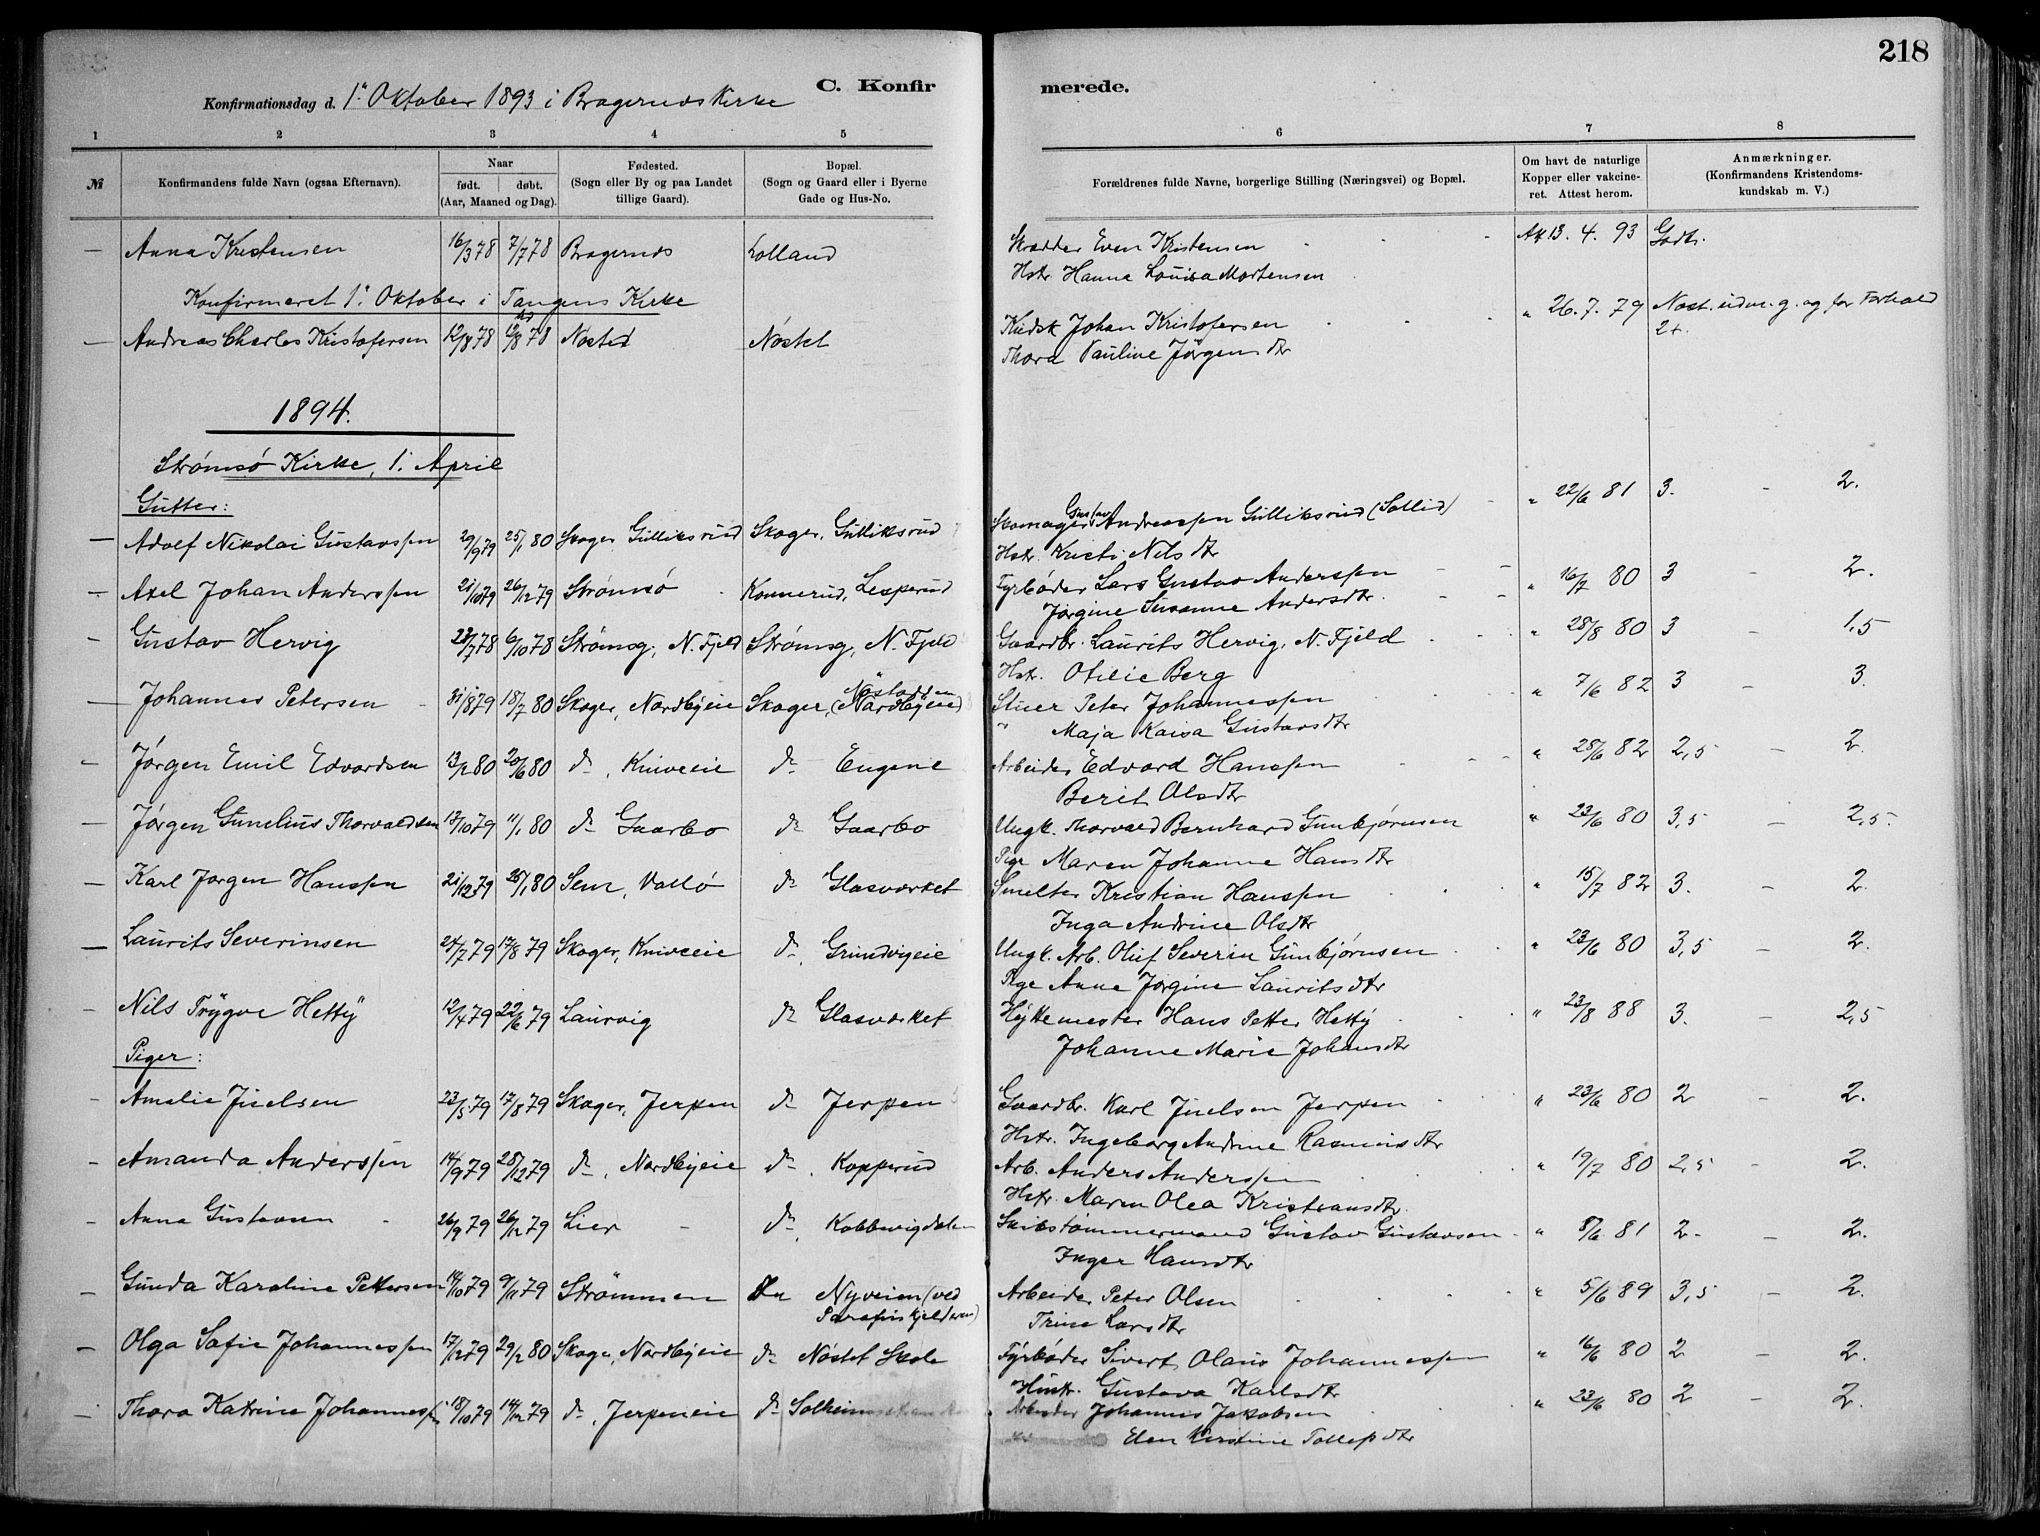 218
Konfirmationsdag d. 1ste Oktober 1893 i Bragernes Kirke
C. Konfirmerede.
1 2 3 4 5 6 7 8
№
Konfirmandens fulde Navn (ogsaa Efternavn).
Naar
født. døbt.
(Aar, Maaned og Dag).
Fødested.
(Sogn eller By og paa Landet
tillige Gaard).
Bopæl.
(Sogn og Gaard eller i Byerne
Gade og Hus-No.
Forældrenes fulde Navne, borgerlige Stilling (Næringsvei) og Bopæl.
Om havt de naturlige
Kopper eller vakcine-
ret. Attest herom.
Anmærkninger.
(Konfirmandens Kristendoms-
kundskab m. V.)
— Anna Kristensen 16/3 78 7/7 78 Bragernes Lolland Skrædder Even Kristensen At. 13. 4. 93 Godt.
Hstr. Hanne Lovisa Mortensen
Konfirmeret 1. Oktober i Tangens Kirke
— Andreas Charles Kristofersen 12/8 78 12/8 78 Nøsted Nøstet Kudsk Johan Kristofersen " 26. 7. 79 Nost. udm. g. og for Forhold
Thora Pauline Jörgensdtr 2+.
1894.
Strømsø Kirke, 1. April
Gutter:
— Adolf Nikolai Gustavssen 29/9 79 25/1 80 Skoger, Gulliksrud Skoger, Gulliksrud Skomager Gustav Andreassen Gulliksrud (Sollid) " 22/6 81 3. – 2.
Hstr. Kristi Nilsdtr
— Axel Johan Anderssen 21/10 79 26/12 79 Strømsø Konnerud, Lesperud Fyrbøder Lars Gustav Anderssen " 16/7 80 3 – 2.
Jørgine Susanne Andersdtr.
— Gustav Hervig 23/7 78 6/10 78 Strømsg, N. Fjeld Strømsg, N. Fjeld Gaardbr. Laurits Hervig, N. Fjeld " 28/8 80 3 – 1,5
Hst. Otilie Berg
— Johannes Petersen 31/8 79 18/7 80 Skoger, Nordbyeie Skoger, Nøstodden (Nordbyeie) Stuer Peter Johannessen " 7/6 82 3 – 3.
" Maja Kaisa Gustavsdtr
— Jørgen Emil Edvardsen 13/2 80 20/6 80 do, Kniveeie do Eugene Arbeider Edvard Hanssen " 28/6 82 2,5 – 2.
Berit Olsdtr
— Jørgen Gunelius Thorvaldsen 17/10 79 11/1 80 do Gaarbo do Gaarbo Ungk. Thorvald Bernhard Gunbjørnsen " 23/6 80 3,5 – 2,5.
Pige Maren Johanne Hansdtr
— Karl Jørgen Hanssen 21/12 79 25/1 80 Sem, Vallø do Glasværket Smelter Kristian Hanssen " 15/7 82 3. – 2.
Inga Andrine Olsdtr
— Laurits Severinsen 24/7 79 17/8 79 Skoger, Kniveeie do, Grundvigeie Ungk. Arb. Oluf Severin Gunbjørnsen " 23/6 80 3,5 – 2.
Pige Anne Jørgine Lauritsdtr
— Nils Trygve Hetty 12/4 79 22/6 79 Laurvig do Glasværket Hyttemester Hans Petter Hetty " 23/8 88 3. – 2,5
Johanne Marie Johansdtr
Piger:
— Amalie Juelsen 23/5 79 17/8 79 Skoger, Jerpen do Jerpen Gaardbr. Karl Juelsen Jerpen " 23/6 80 2 – 2.
Hstr. Ingeborg Andrine Rasmusdtr
— Amanda Anderssen 14/9 79 28/12 79 do, Nordbyeie do, Kopperud Arb. Anders Anderssen " 19/7 80 2,5 – 2.
Hstr. Maren Olea Kristiansdtr.
— Anna Gustavsen 26/9 79 26/12 79 Lier do, Kobbevigdalen Skibstømmermand Gustav Gustavsen " 8/6 81 2 – 2.
Inger Hansdtr
— Gunda Karoline Pettersen 14/10 79 9/11 79 Strömmen do Nyveien (ved " 5/6 89 3,5 – 2.
Parafinkjelderen) Arbeider Peter Olsen
Trine Larsdtr
— Olga Sofie Johannessen 17/12 79 29/2 80 Skoger, Nordbyeie do Nøstet Skole Fyrbøder Sivert Olaus Johannessen " 16/6 80 2 – 2.
Hustr. Gustava Karlsdtr
— Thora Katrine Johannessen 18/10 79 14/12 79 do, Jerpeneie do Solheim Arbeider Johannes Jakobsen " 23/6 80 2 – 2.
Elen Kirstine Tollefsdtr